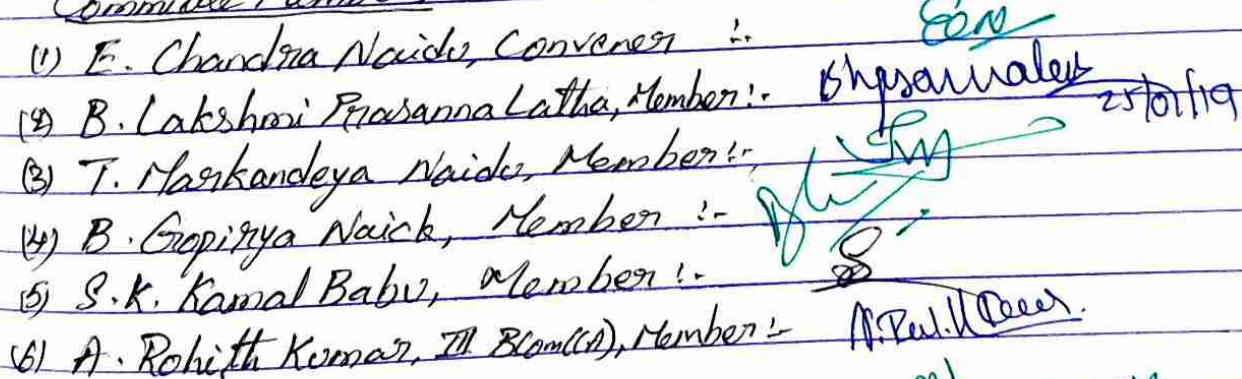 Committee
(1) E. Chandra Naidu, Convener :-
(2) B. Lakshmi Prasanna Latha, Member :- 25/01/19
(3) T. Markandeya Naidu, Member :-
(4) B. Gopiriya Naick, Member :-
(5) S.K. Kamal Babu, Member :-
(6) A. Rohith Kumar, III BCom(CA), Member :-